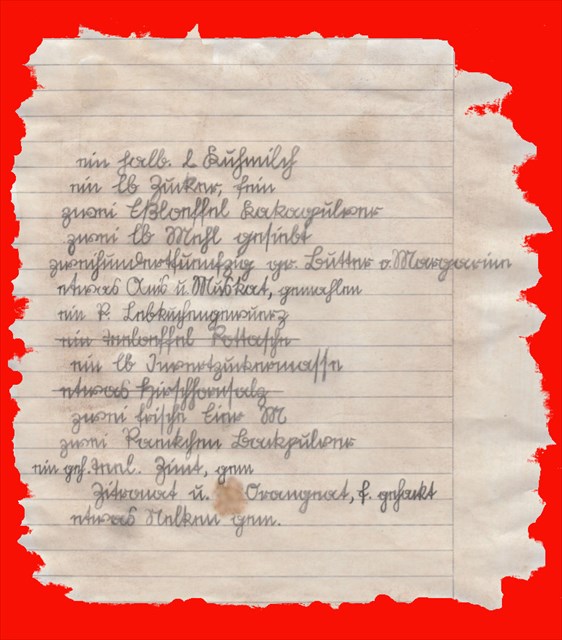 ein halb. L Kuhmilch
ein lb Zucker, fein
zwei Eßloeffel Kakaopulver
zwei lb Mehl gesiebt
zweihundertfuenfzig gr. Butter o. Margarine
etwas Anis u. Muskat, gemahlen
ein P. Lebkuchengewuerz
ein Teeloeffel Pottasche
ein lb Invertzuckermasse
etwas Hirschhornsalz
zwei frische Eier M
zwei Paeckchen Backpulver
ein geh. Teel. Zimt, gem
Zitronat u. Orangeat, f. gehackt
etwas Nelken gem.